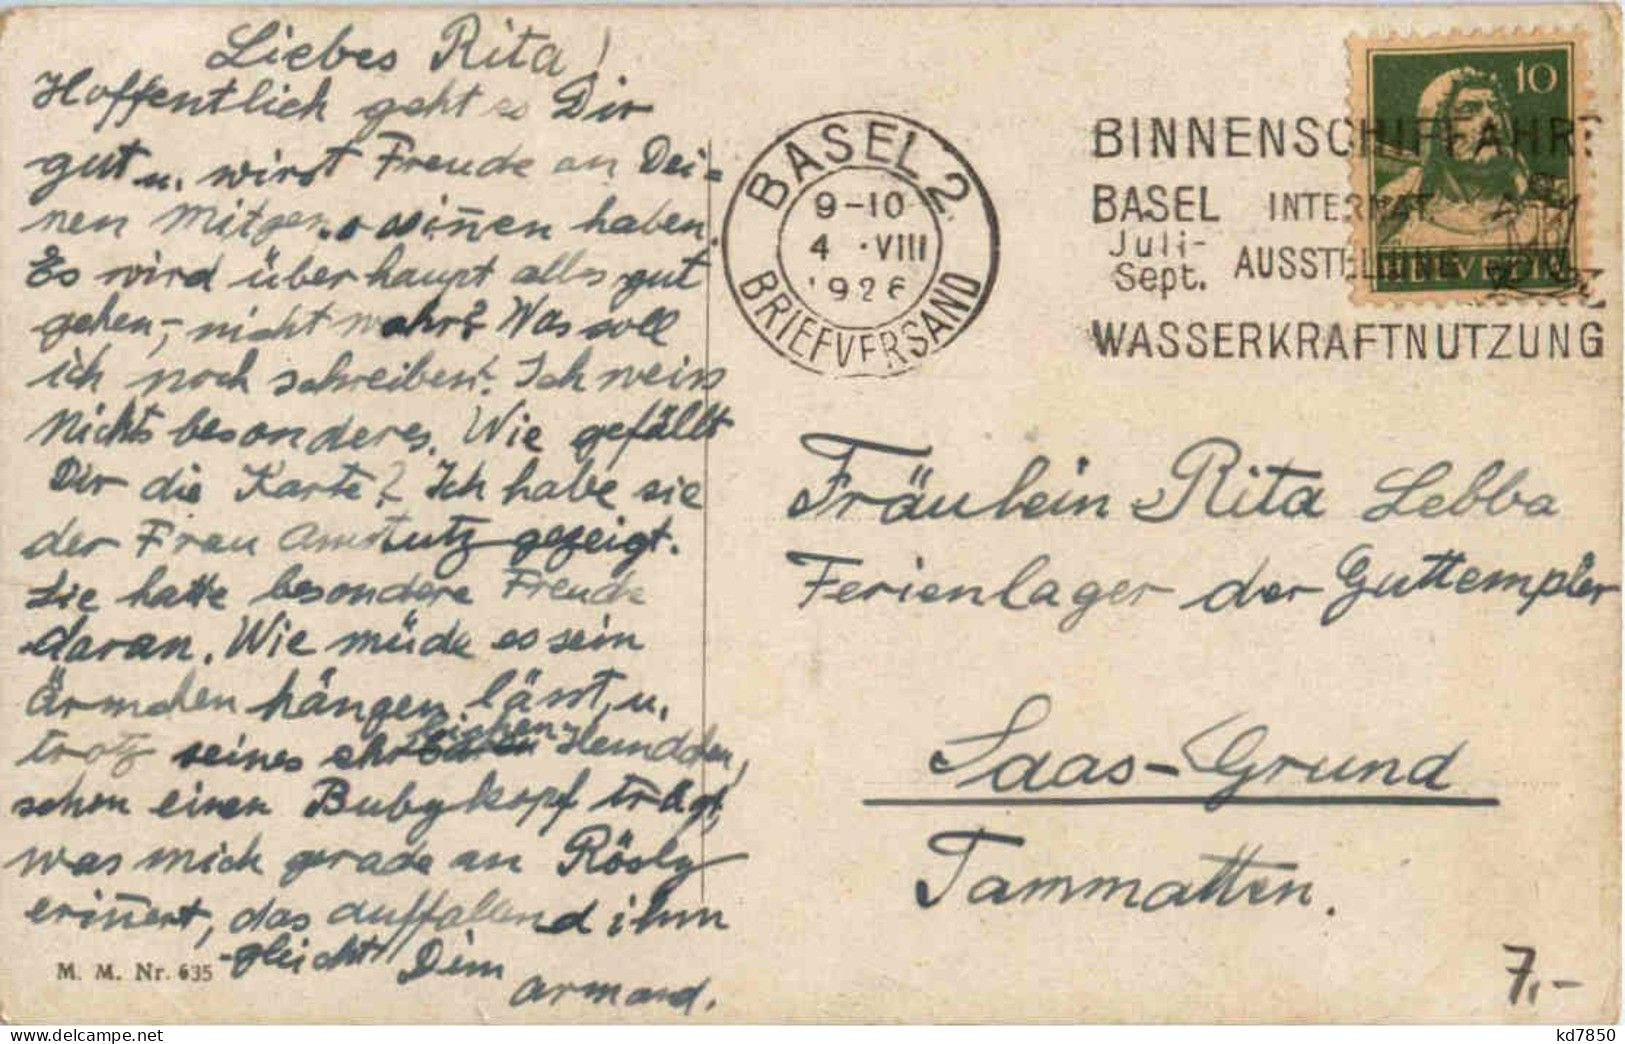 Liebes Rita!
Hoffentlich geht es Dir
gut u. wirst Freude an Dei=
nen Mitgenossin̄en haben.
Es wird überhaupt alles gut
gehen, nicht wahr? Was soll
ich noch schreiben? Ich weiss
Nichts besonderes. Wie gefällt
Dir die Karte? Ich habe sie
der Frau Amstutz gezeigt.
Sie hatte besondere Freude
daran. Wie müde es sein
Ärmchen hängen lässt, u.
trotz seines Hemdchen,
schon einen Bubykopf trägt,
was mich gerade an Rösly
erin̄ert, das auffallend ihm
gleicht. Dein
Armand.
M. M. Nr. 635
BASEL 2
9-10
4 · VIII
1926
BRIEFVERSAND
BINNENSCHIFFAHRT
BASEL INTERNAT.
Juli-
Sept. AUSSTELLUNG
WASSERKRAFTNUTZUNG
10
HELVETIA
Fräulein Rita Lebba
Ferienlager der Guttempler
Saas-Grund
Tammatten.
7.-
kd7850